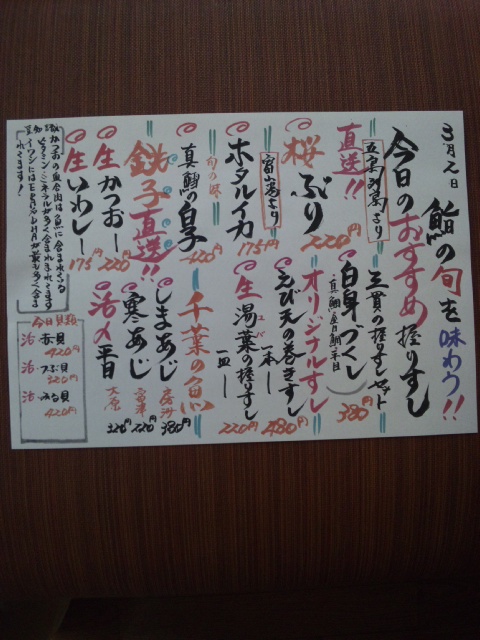 3月2日
鮨の旬を味わう!!
今日のおすすめ握りすし
五島列島より
直送!!
三貫の握りすしセット
白身づくし
・真鯛
380円
桜ぶり
220円
オリジナルすし
えび天の巻きすし
一本
480円
富山湾より
ホタルイカ
175円
生湯葉の握りすし
ユバ
一皿
220円
旬の味
真鱈の白子
420円
千葉の魚
銚子直送!!
しまあじ
380円
寒あじ
富津
220円
生かつおー
220円
活〆平目
大原
320円
生いわしー
175円
豆知識
今日貝類
活赤貝
420円
活つぶ貝
320円
活みる貝
420円